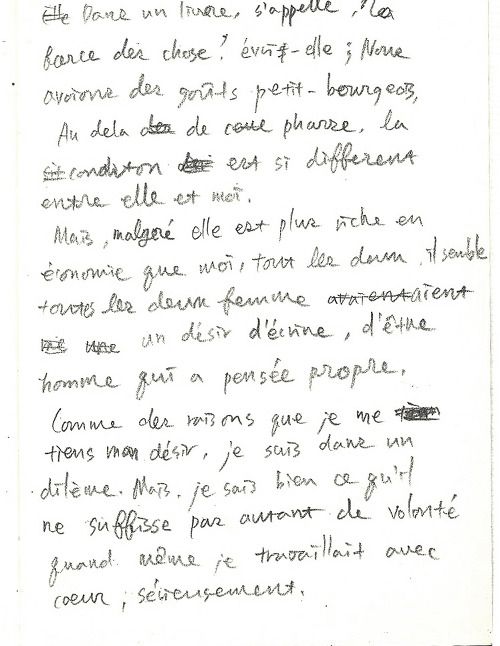 Dans un livre, s'appelle, 'La
force des chose' écrit-elle ; Nous
avions des goûts petit-bourgeois,
Au dela de ceue pharse, la
conditon est si different
entre elle et moi.
Mais, malgré elle est plus riche en
économie que moi, tout les deux, il semble
toutes les deux femme aient
un désir d'écrire, d'être
homme qui a pensée propre.
Comme des raisons que je me
tiens mon désir, je suis dans un
dilème. Mais, je sais bien ce qu'il
ne suffisse par autant de volonté
quand même je travaillait avec
coeur, sérieusement.